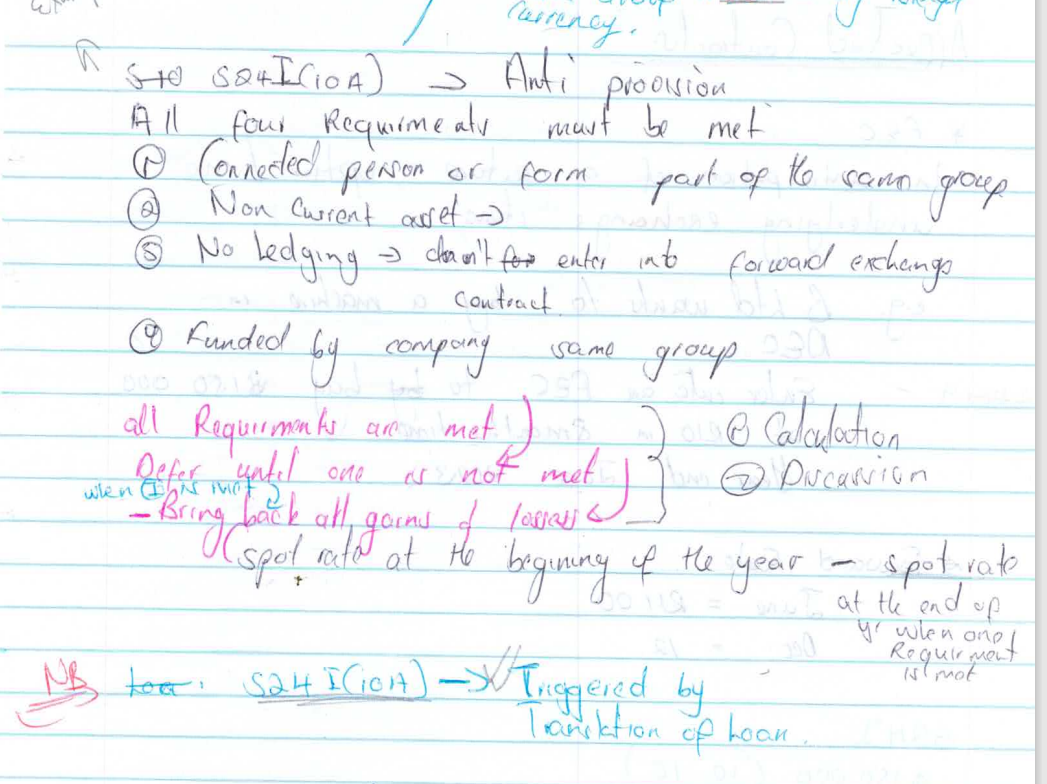 Currency.
S24I(10A) → Anti provision
All four Requirments must be met
① Connected person or form part of the same group
② Non Current asset →
③ No hedging → doesn't enter into forward exchange
contract.
④ Funded by company same group
all Requirments are met
① Calculation
Defer until one is not met
② Discussion
when is met
- Bring back all gains & losses
(spot rate at the begining of the year - spot rate
at the end of
yr when one
Requirment
is not
NB S24I(10A) → Triggered by
Translation of Loan.